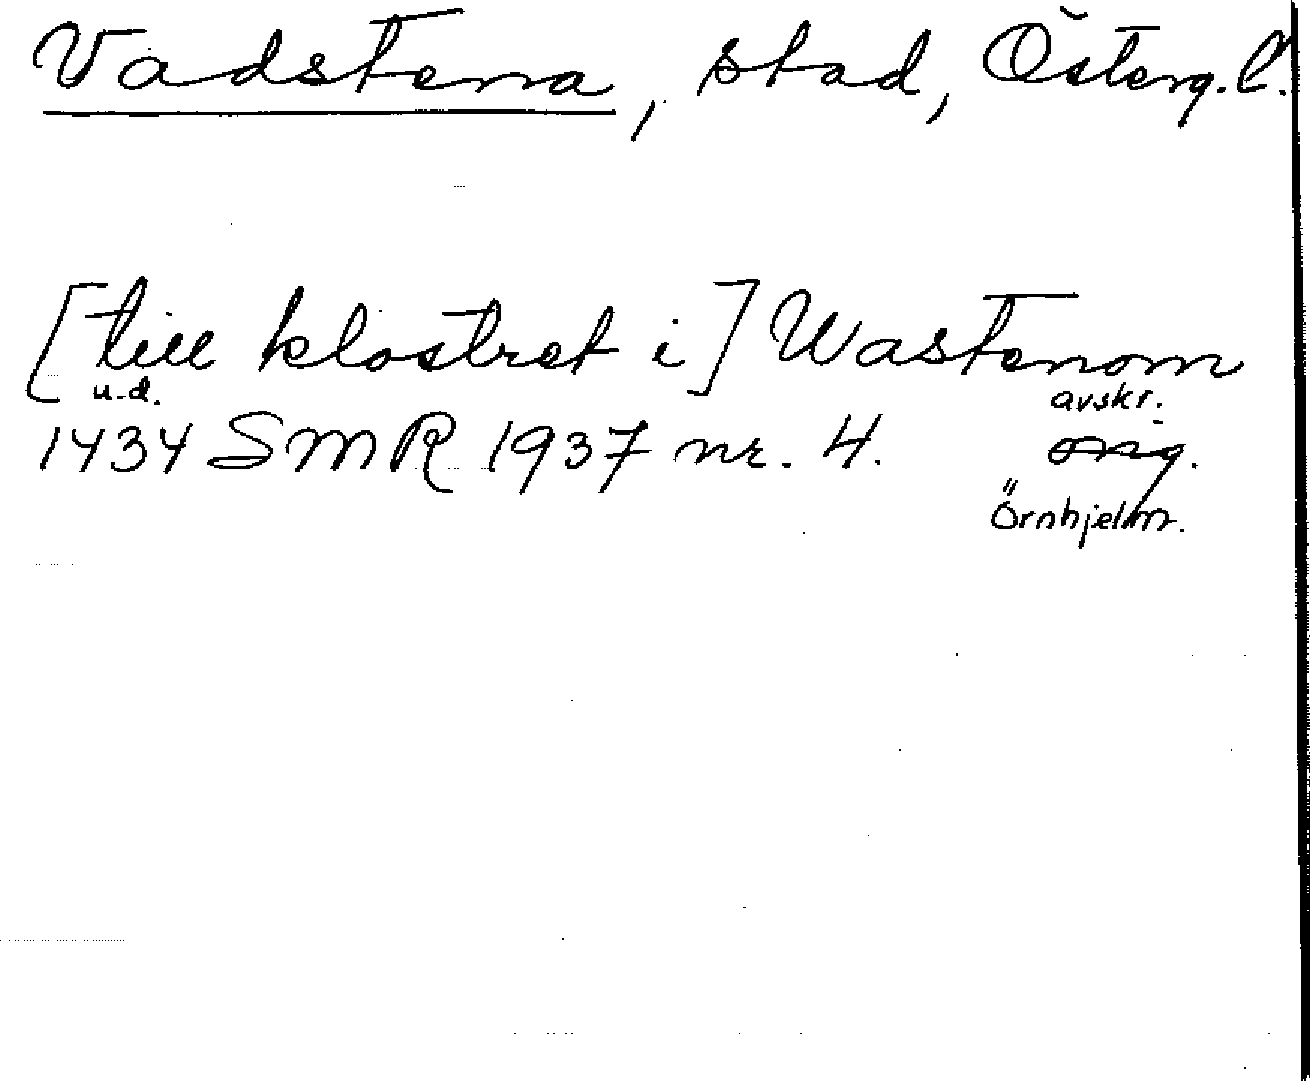 Vadstena, stad, Österg. l.
[till klostret i] Wastenom
u.d. avskr.
1434 SMR 1937 nr. 4. orig.
Örnhjelm.